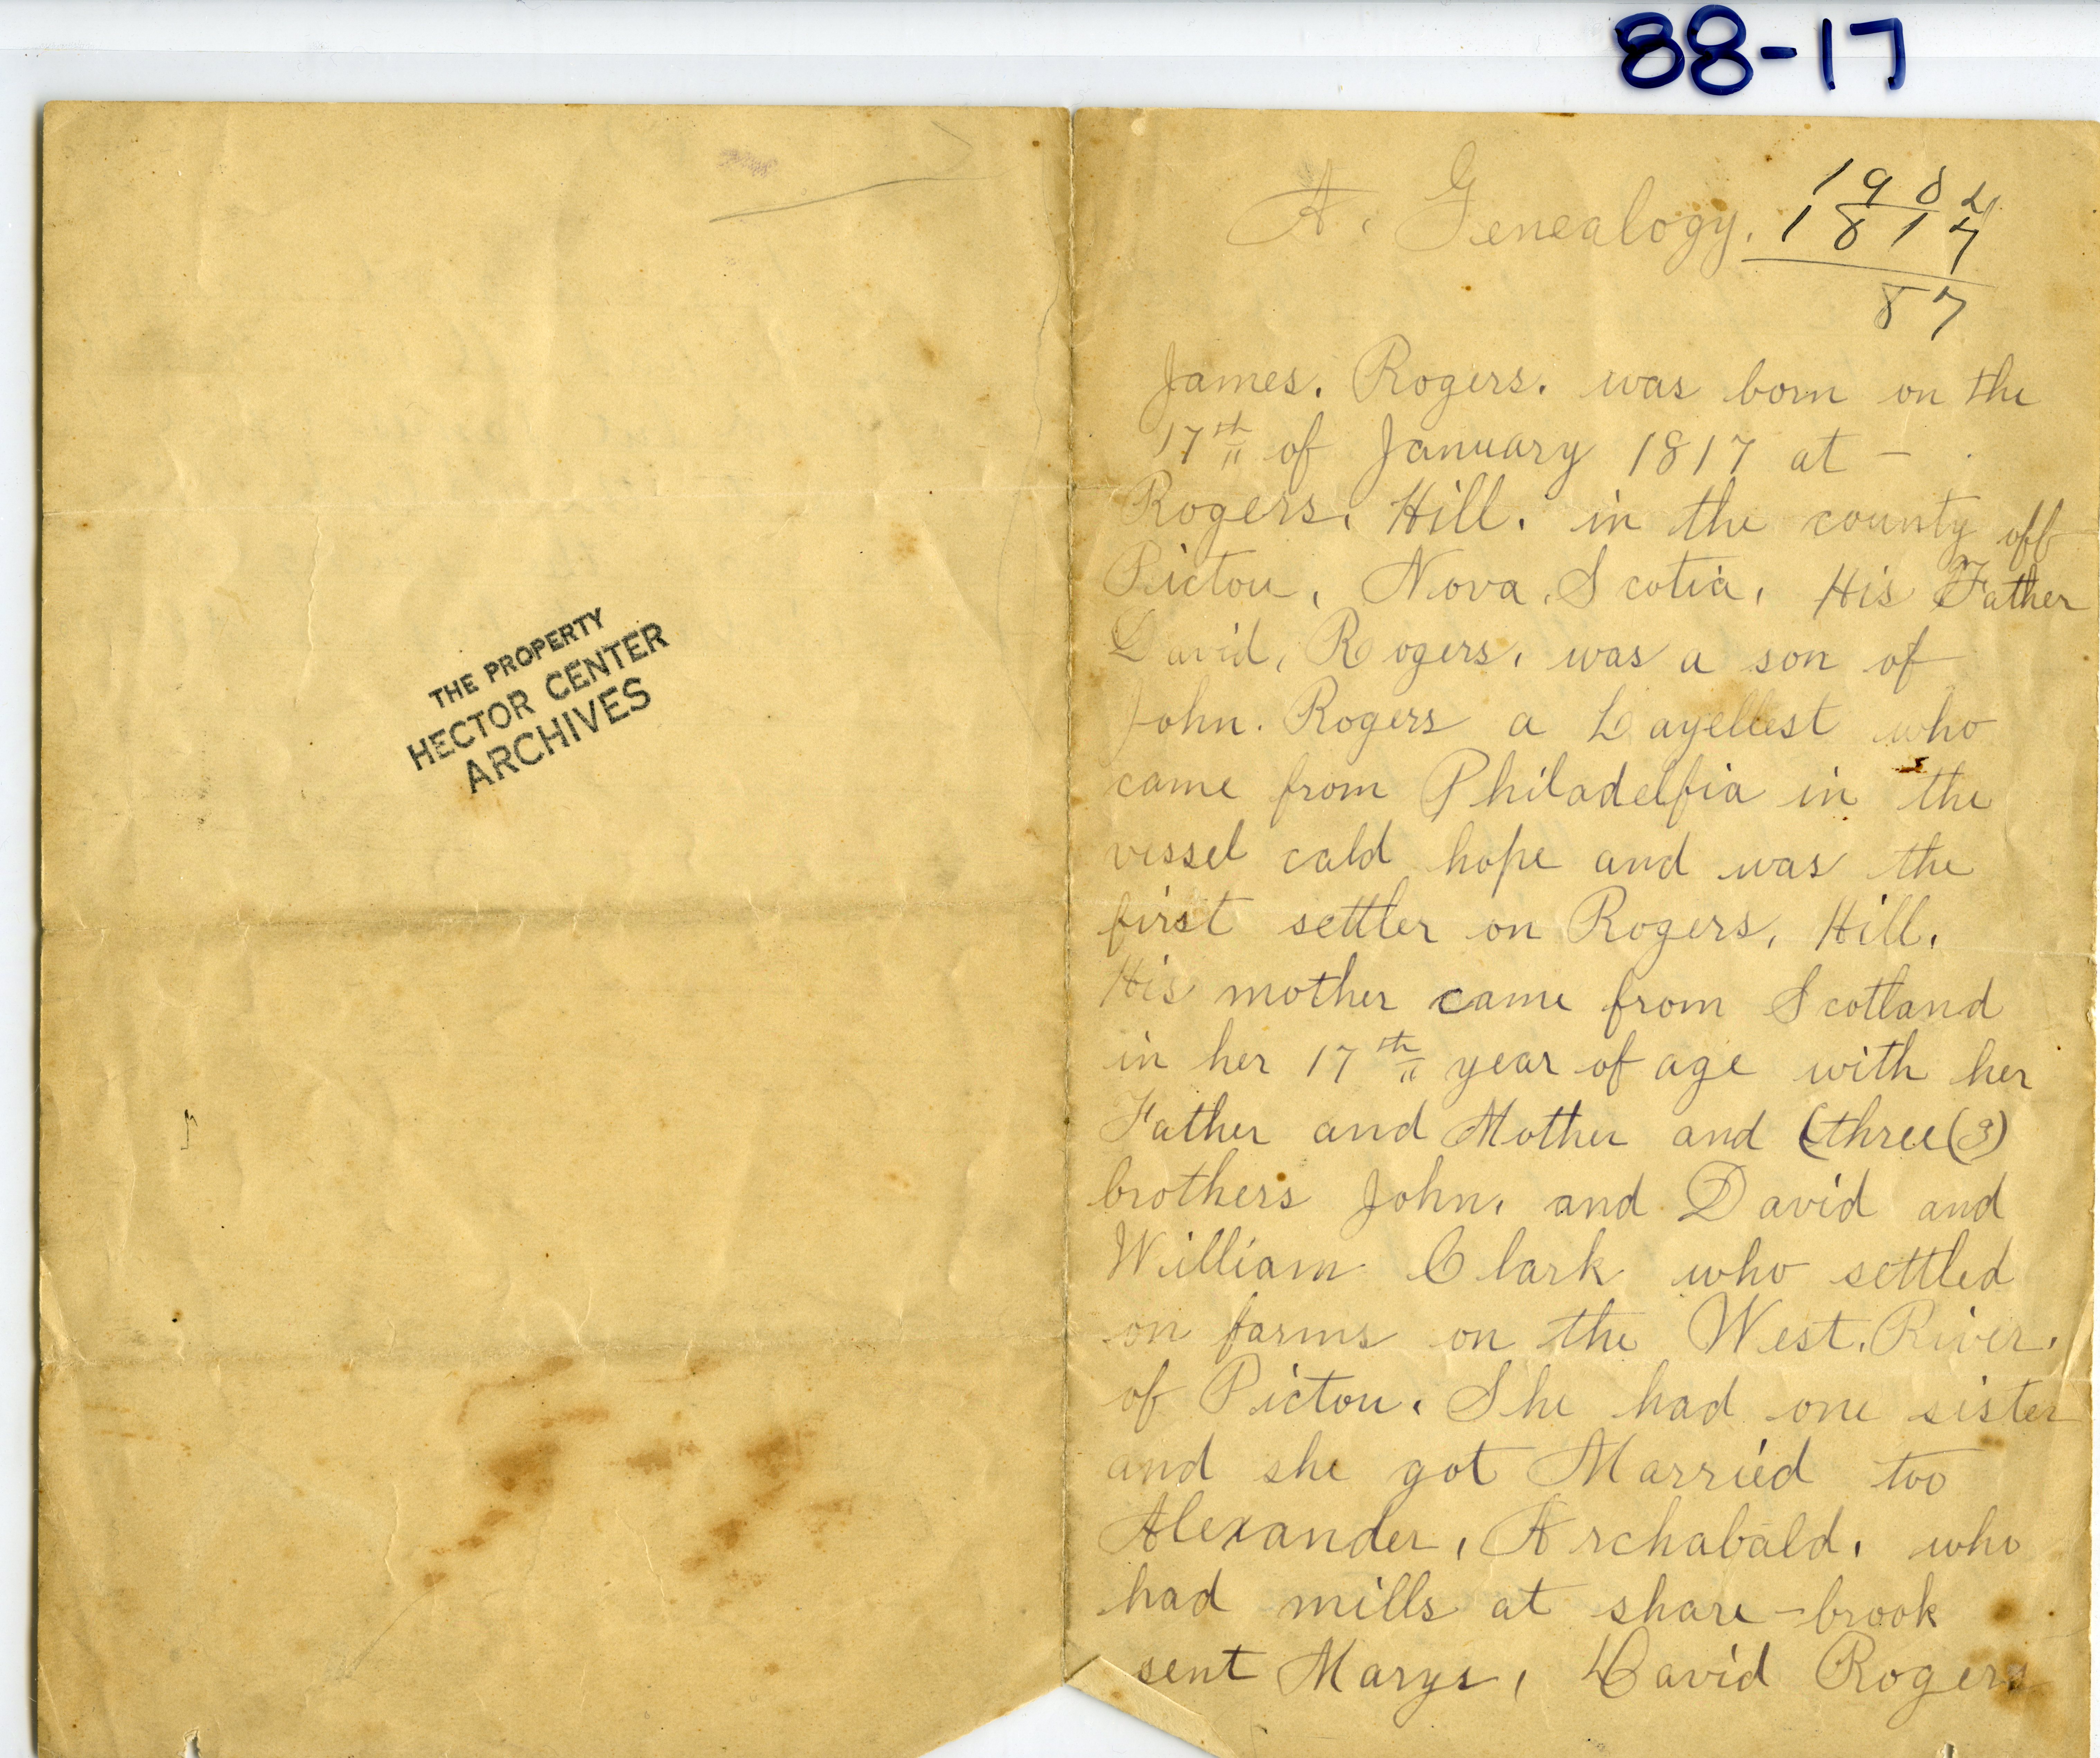 88-17
THE PROPERTY
HECTOR CENTER
ARCHIVES
A. Genealogy.
1904
1817
87
James. Rogers. was born on the
17th of January 1817 at -
Rogers. Hill. in the county off
Pictou, Nova. Scotia, His Father
David, Rogers, was a son of
John. Rogers a Layellest who
came from Philadelfia in the
vessel cald hope and was the
first settler on Rogers, Hill.
His mother came from Scotland
in her 17th year of age with her
Father and Mother and (three(3)
brothers John, and David and
William Clark who settled
on farms on the West. River.
of Pictou. She had one sister
and she got Married too
Alexander, Archabald, who
had mills at share-brook
sent Marys, David Rogers